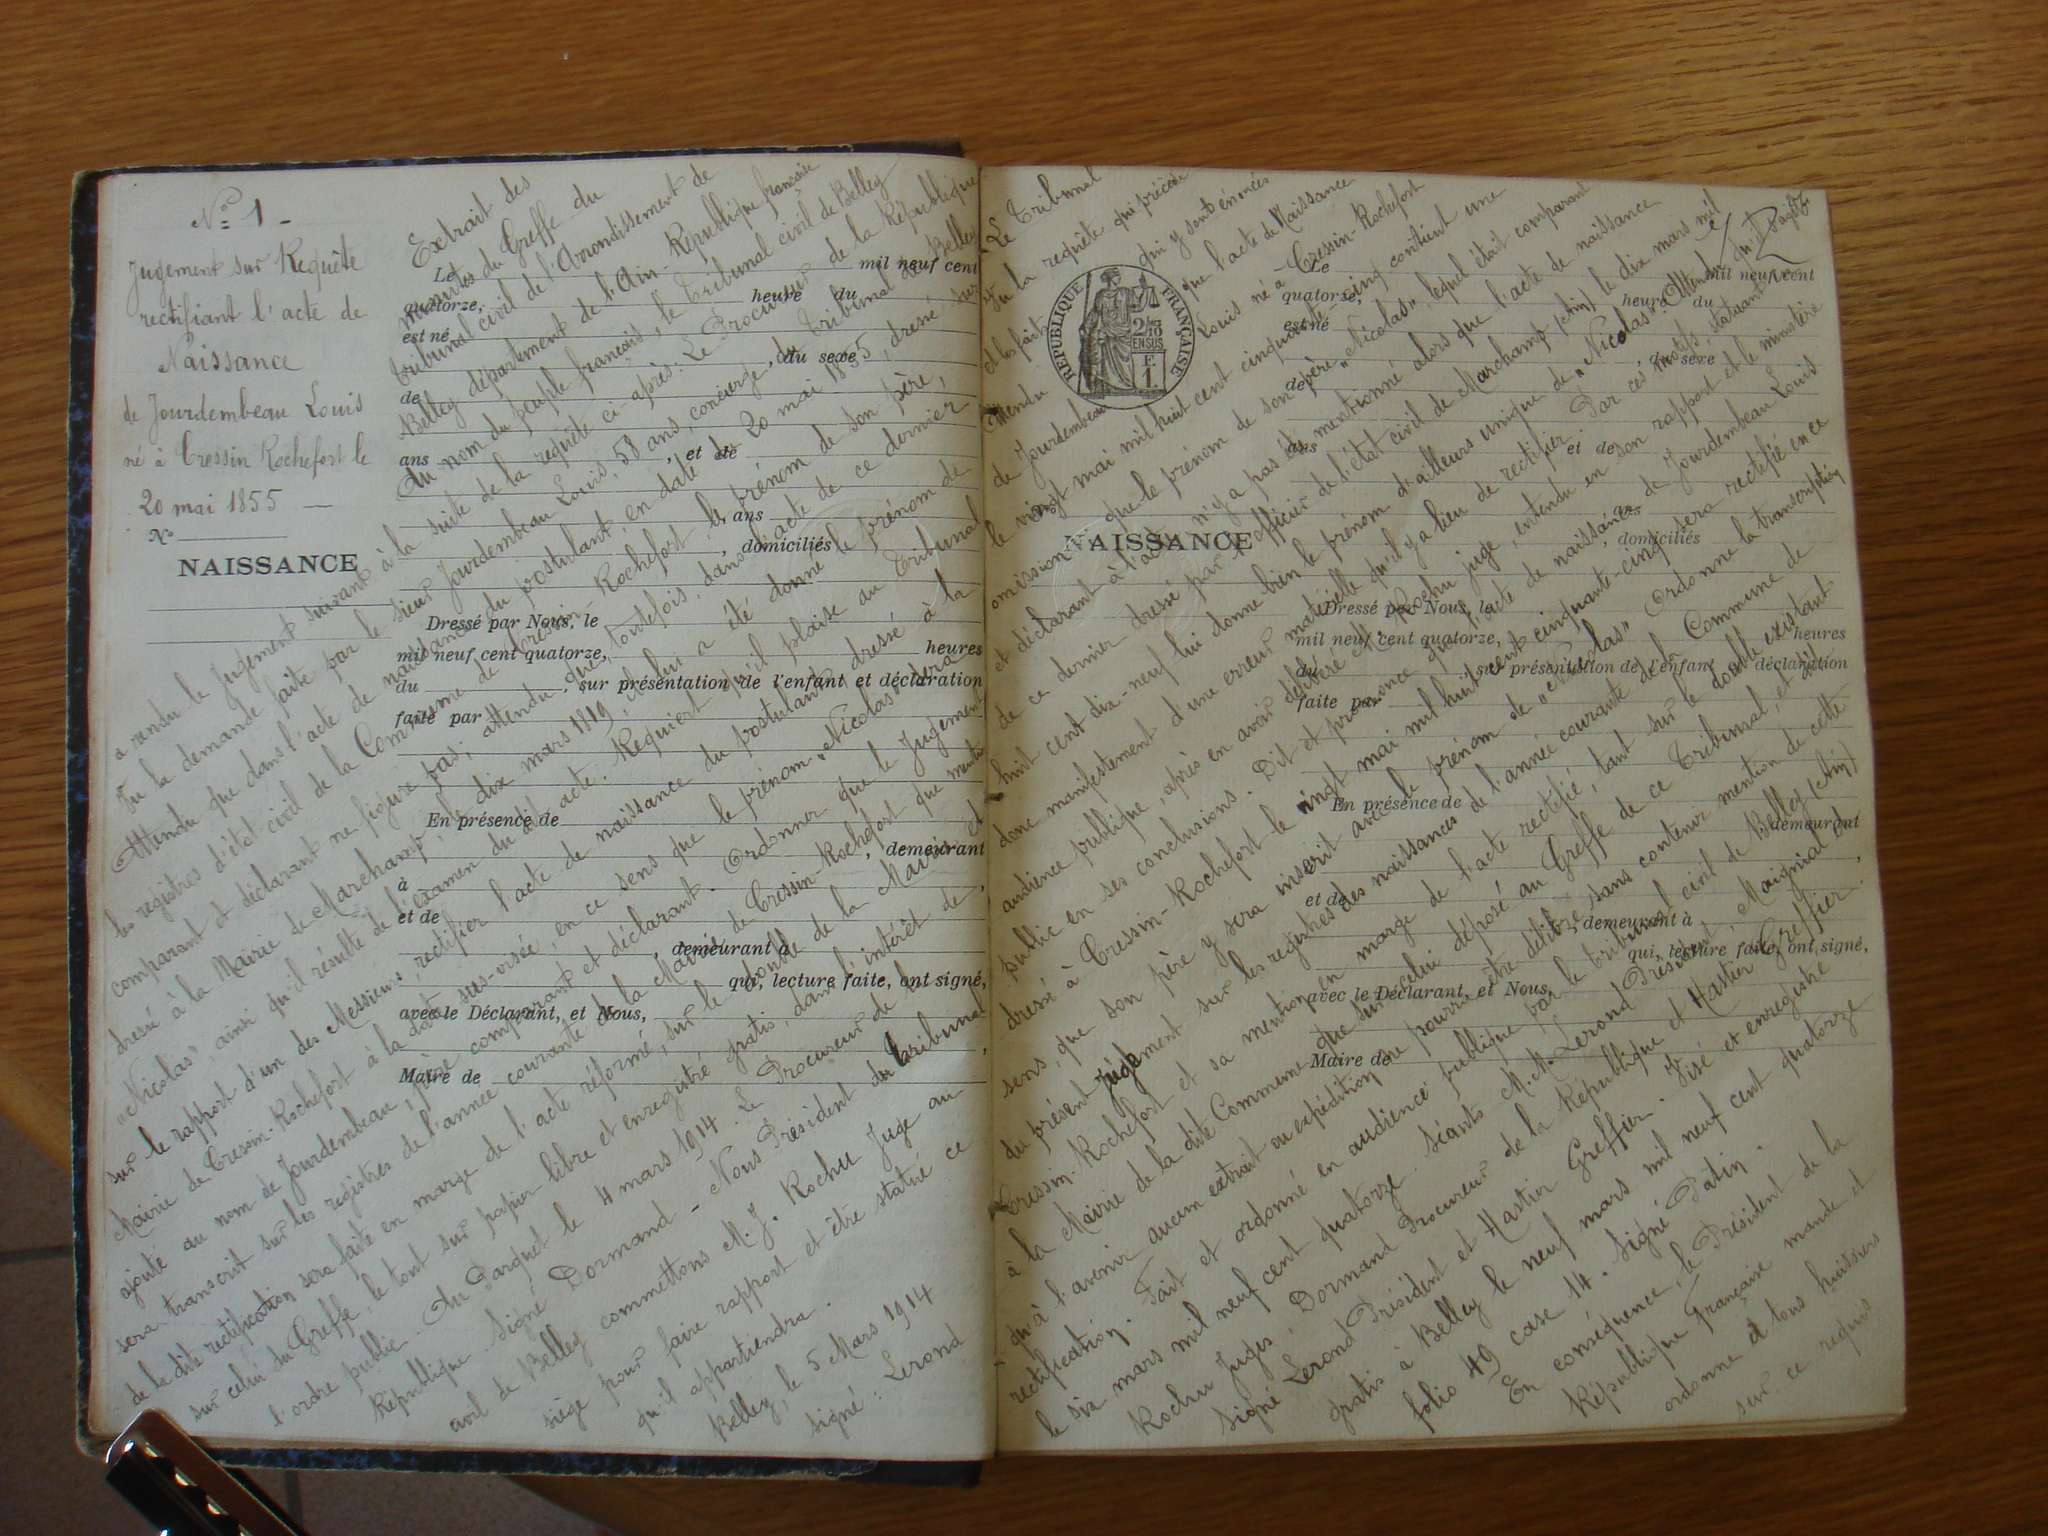 N° 1 -
Jugement sur Requête
rectifiant l'acte de
Naissance
de Jourdembeau Louis
né à Cressin Rochefort le
20 mai 1855 —
N°
NAISSANCE
Extrait des
minutes du Greffe du
tribunal civil de l'Arrondissement de
Belley département de l'Ain - République française
Au nom du peuple français, le Tribunal civil de Belley
a rendu le jugement suivant à la suite de la requête ci-après: Le Procureur de la République
Vu la demande faite par le sieur Jourdembeau Louis, 58 ans, concierge du Tribunal de Belley
Attendu que dans l'acte de naissance du postulant, en date du 20 mai 1855, dressé sur
les registres d'état civil de la Commune de Cressin-Rochefort, le prénom de son père,
comparant et déclarant ne figure pas; attendu que, toutefois, dans l'acte de ce dernier
dressé à la Mairie de Marchamp, le dix mars 1819, il lui a été donné le prénom de
"Nicolas" ainsi qu'il résulte de l'examen du dit acte. Requiert qu'il plaise au Tribunal
sur le rapport d'un des Messieurs, rectifier l'acte de naissance du postulant, dressé à la
Mairie de Cressin-Rochefort à la date sus-visée, en ce sens que le prénom "Nicolas" sera
ajouté au nom de Jourdembeau, père comparant et déclarant. Ordonner que le Jugement
sera transcrit sur les registres de l'année courante de la Mairie de Cressin-Rochefort que mention
de la dite rectification sera faite en marge de l'acte réformé, sur le double de la Mairie et
sur celui du Greffe, le tout sur papier libre et enregistré gratis, dans l'intérêt de
l'ordre public. Au Parquet le 4 mars 1914. Le Procureur de la
République signé Dormand - Nous Président du Tribunal
civil de Belley commettons M. J. Rochu Juge au
siège pour faire rapport et être statué ce
qu'il appartiendra.
Belley, le 5 Mars 1914
signé: Lerond
Le mil neuf cent
quatorze, heure du
est né
de , du sexe
ans , et de
, ans
, domiciliés
Dressé par Nous, le
mil neuf cent quatorze, heures
du , sur présentation de l'enfant et déclaration
faite par
En présence de
, demeurant
à
et de ,
, demeurant à
qui, lecture faite, ont signé,
avec le Déclarant, et Nous,
Maire de
Le Tribunal
Vu la requête qui précède
et les faits qui y sont énoncés
Attendu que l'acte de Naissance
de Jourdembeau Louis né à Cressin-Rochefort
le vingt mai mil huit cent cinquante-cinq contient une
omission que le prénom de son père "Nicolas", lequel était comparant
et déclarant à l'acte n'y a pas été mentionné alors que l'acte de naissance
de ce dernier dressé par l'officier de l'état civil de Marchamp (Ain) le dix mars mil
huit cent dix-neuf lui donne bien le prénom d'ailleurs unique de "Nicolas". Attendu qu'il s'agit
donc manifestement d'une erreur matérielle qu'il y a lieu de rectifier. Par ces motifs, statuant en
audience publique, après en avoir délibéré M. Rochu juge, entendu en son rapport et le ministère
public en ses conclusions. Dit et prononce que l'acte de naissance de Jourdembeau Louis
dressé à Cressin-Rochefort le vingt mai mil huit cent cinquante-cinq sera rectifié en ce
sens, que son père y sera inscrit avec le prénom de "Nicolas". Ordonne la transcription
du présent jugement sur les registres des naissances de l'année courante de la Commune de
Cressin-Rochefort et sa mention en marge de l'acte rectifié, tant sur le double existant
à la Mairie de la dite Commune que sur celui déposé au Greffe de ce Tribunal, et dit
qu'à l'avenir aucun extrait ou expédition ne pourra être délivré sans contenir mention de cette
rectification. Fait et ordonné en audience publique par le tribunal civil de Belley (Ain)
le six mars mil neuf cent quatorze. Séants M.M. Lerond Président, Maignial et
Rochu Juges, Dormand Procureur de la République et Hastier Greffier.
signé Lerond Président et Hastier Greffier. Visé et enregistré
gratis à Belley le neuf mars mil neuf cent quatorze
folio 49 case 14. Signé Patin.
En conséquence, le Président de la
République Française mande et
ordonne à tous huissiers
sur ce requis
RÉPUBLIQUE FRANÇAISE
2/10
EN SUS
F.
1.
Le mil neuf cent
quatorze, heure du
est né
de , du sexe
ans et de
, domiciliés
NAISSANCE
Dressé par Nous, le
mil neuf cent quatorze, heures
du , sur présentation de l'enfant et déclaration
faite par
En présence de
, demeurant
et de ,
, demeurant à
qui, lecture faite, ont signé,
avec le Déclarant, et Nous,
Maire de